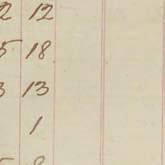 2 12
5 18
3 13
1
5 8